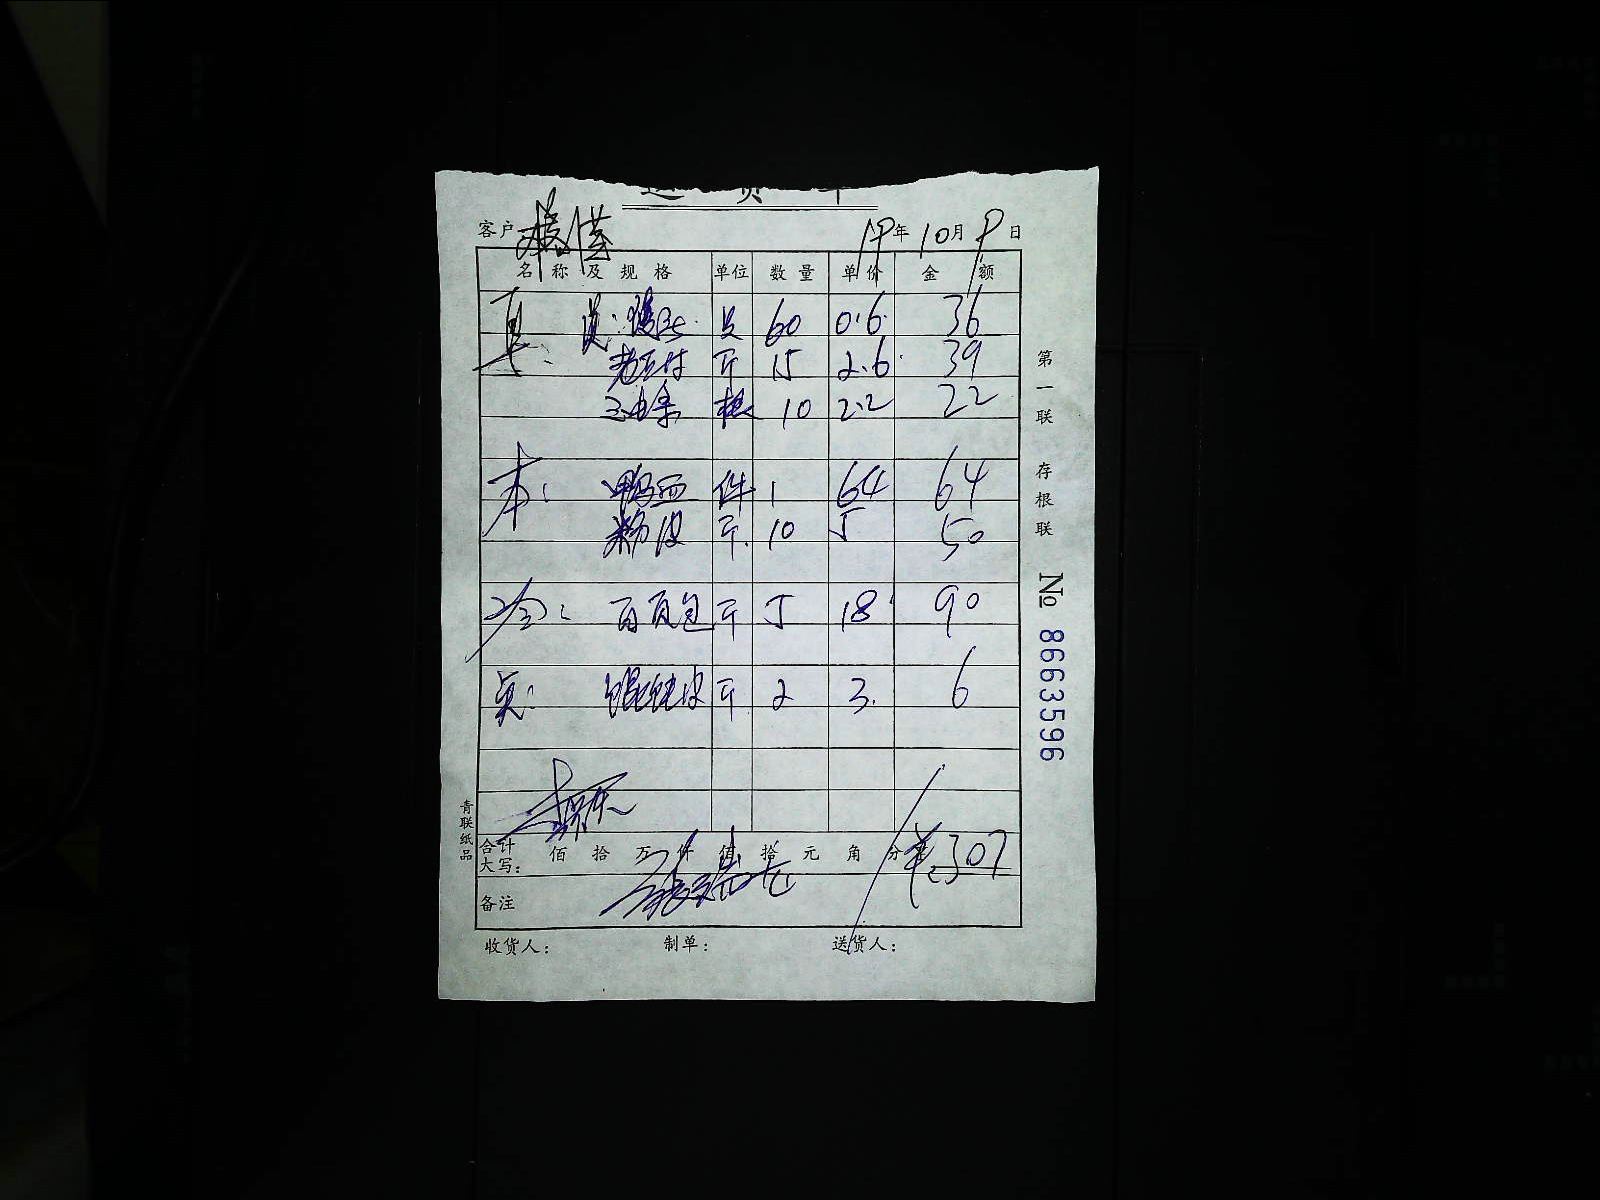 送货单
客户
19年10月9日
名称及规格 单位 数量 单价 金额
60 0.6 36
斤 15 2.6 39
油条 根 10 2.2 22
本: 鸭血 件 1 64 64
粉皮 斤 10 5 50
冷: 百页包 斤 5 18 90
馄饨皮 斤 2 3. 6
合计大写: 佰 拾 万 仟 佰 拾 元 角 分 ¥:307
备注
收货人: 制单: 送货人:
第一联 存根联
№ 8663596
青联纸品